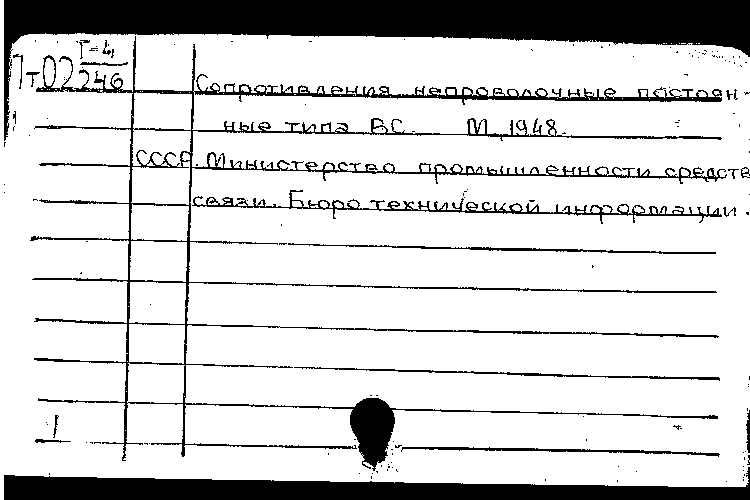 Г-4
Пт02 246
Сопротивления непроволочные постоян-
ные типа ВС. М., 1948.
СССР. Министерство промышленности средств
связи. Бюро технической информации.
1